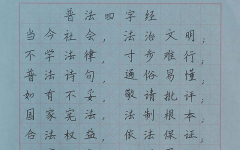 普法四字经
当今社会，法治文明；
不学法律，寸步难行；
普法诗句，通俗易懂；
如有不妥，敬请批评；
国家宪法，法制根本；
合法权益，依法保证；